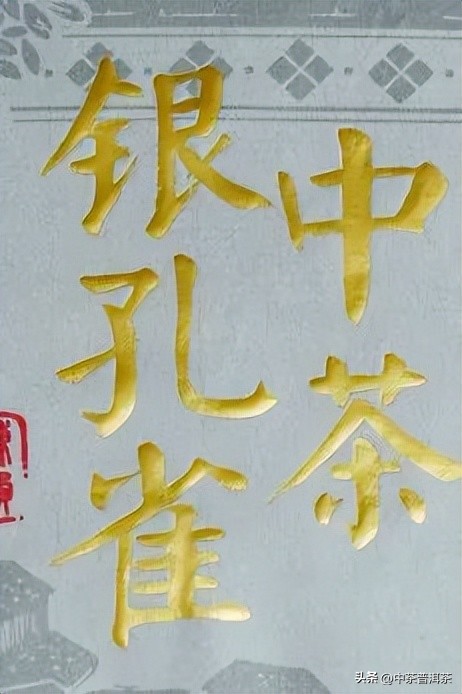 中茶
银孔雀
头条 @中茶普洱茶